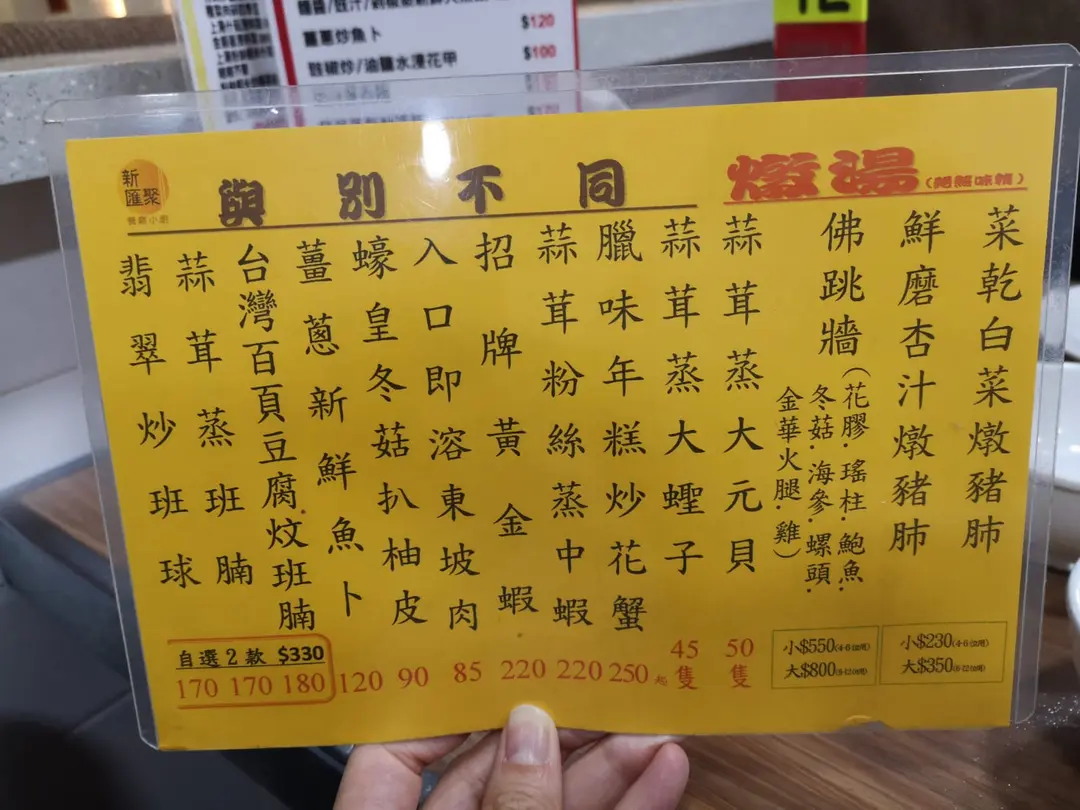 $120
薑蔥炒魚卜
$100
豉椒炒/油鹽水浸花甲
新匯聚
餐廳小廚
與別不同
燉湯
菜乾白菜燉豬肺
鮮磨杏汁燉豬肺
小$230(4-6位用)
大$350
佛跳牆(花膠·瑤柱·鮑魚·
冬菇·海參·螺頭·
金華火腿·雞)
小$550(4-6位用)
大$800
蒜茸蒸大元貝
50隻
蒜茸蒸大蟶子
45隻
臘味年糕炒花蟹
250起
蒜茸粉絲蒸中蝦
220
招牌黃金蝦
220
入口即溶東坡肉
85
蠔皇冬菇扒柚皮
90
薑蔥新鮮魚卜
120
台灣百頁豆腐炆班腩
180
蒜茸蒸班腩
170
翡翠炒班球
170
自選2款 $330